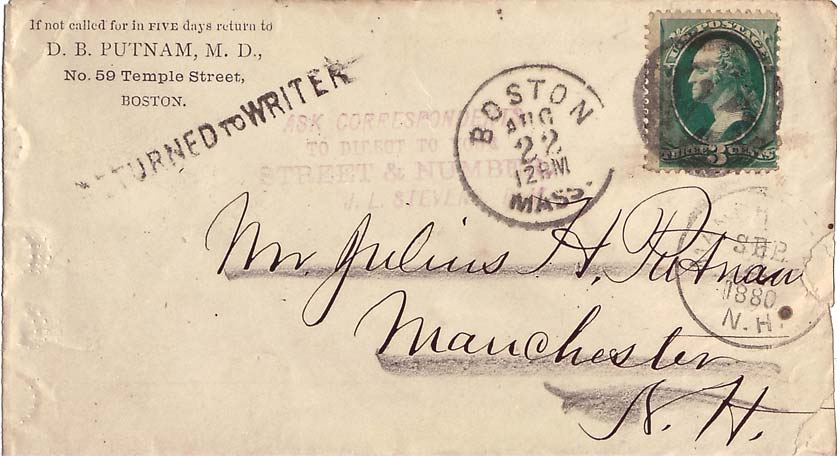 If not called for in FIVE days return to
D. B. PUTNAM, M. D.,
No. 59 Temple Street,
BOSTON.
RETURNED TO WRITER
ASK CORRESPONDENTS
TO DIRECT TO YOUR
STREET & NUMBER
J. L. STEVENS
BOSTON
AUG
22
12M
MASS.
U.S. POSTAGE
THREE 3 CENTS
SEP
1880
N. H.
Mr. Julius H. Putnam
Manchester
N. H.